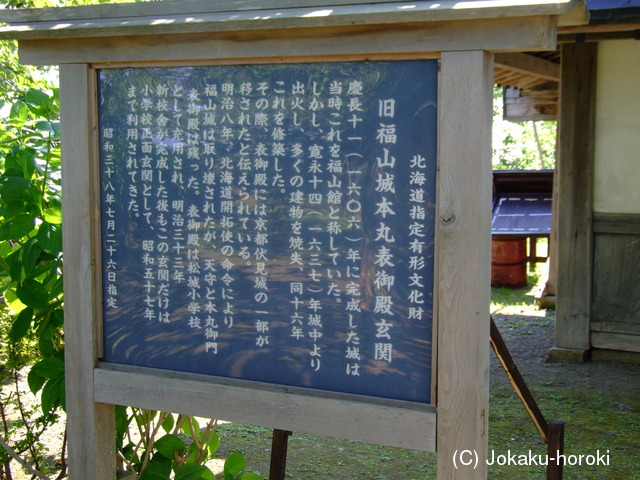 北海道指定有形文化財
旧福山城本丸表御殿玄関
慶長十一(一六〇六)年に完成した城は
当時これを福山館と称していた。
しかし、寛永十四(一六三七)年城中より
出火し、多くの建物を焼失、同十六年
これを修築した。
その際、表御殿には京都伏見城の一部が
移されたと伝えられている。
明治八年、北海道開拓使の命令により
福山城は取り壊されたが、天守と本丸御門
表御殿は残った。表御殿は松城小学校
として充用され、明治三十三年
新校舎が完成した後もこの玄関だけは
小学校正面玄関として、昭和五十七年
まで利用されてきた。
昭和三十八年七月二十六日指定
(C) Jokaku-horoki